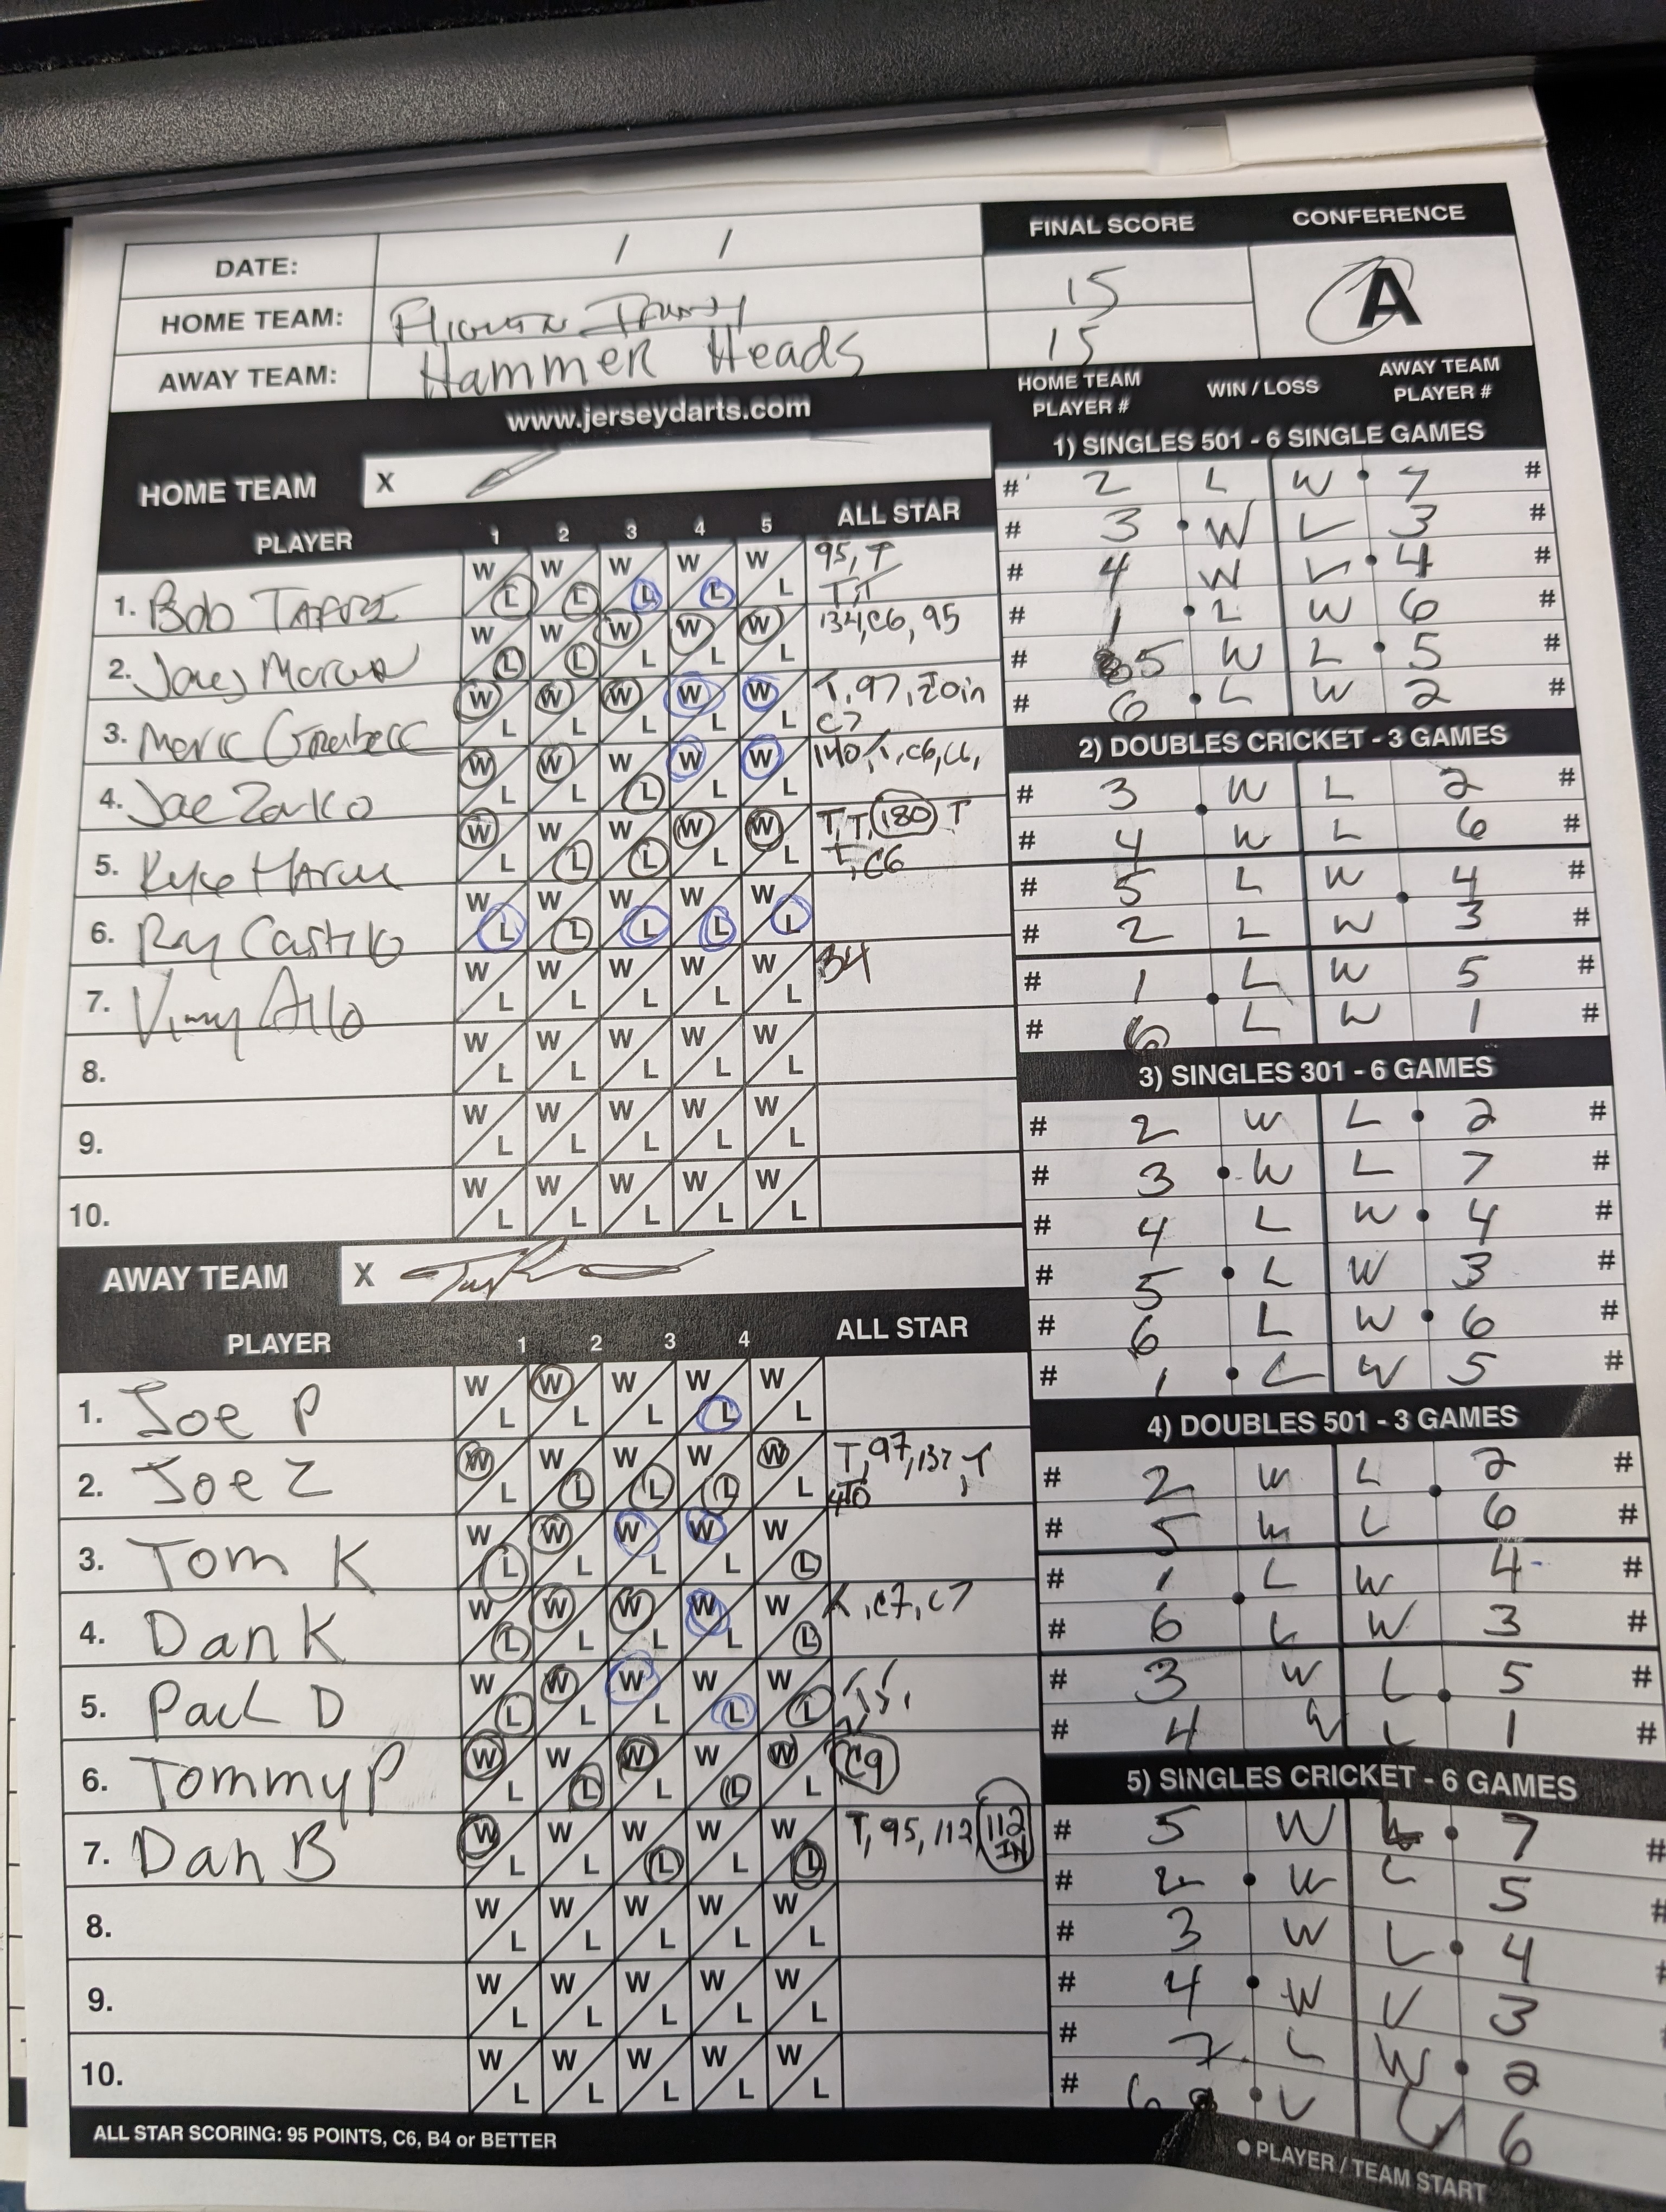 DATE: / /
FINAL SCORE
CONFERENCE
HOME TEAM:
15
A
AWAY TEAM: Hammer Heads
15
www.jerseydarts.com
HOME TEAM PLAYER # WIN / LOSS AWAY TEAM PLAYER #
HOME TEAM X
PLAYER 1 2 3 4 5 ALL STAR
1. Bob W L W L W L W L W L 95, T
T, T
2. W L W L W L W L W L 134, C6, 95
3. W L W L W L W L W L T, 97, in
C7
4. Joe Zarko W L W L W L W L W L 140, T, C6, C6,
5. W L W L W L W L W L T, T, 180 T
T, C6
6. Ray Castillo W L W L W L W L W L
7. W L W L W L W L W L B4
8. W L W L W L W L W L
9. W L W L W L W L W L
10. W L W L W L W L W L
AWAY TEAM X
PLAYER 1 2 3 4 ALL STAR
1. Joe P W L W L W L W L W L
2. Joe Z W L W L W L W L W L T, 97, 137, T
3. Tom K W L W L W L W L W L
4. Dan K W L W L W L W L W L , C7, C7
5. Paul D W L W L W L W L W L
6. Tommy P W L W L W L W L W L C9
7. Dan B W L W L W L W L W L T, 95, 112 112
IN
8. W L W L W L W L W L
9. W L W L W L W L W L
10. W L W L W L W L W L
ALL STAR SCORING: 95 POINTS, C6, B4 or BETTER
1) SINGLES 501 - 6 SINGLE GAMES
# 2 L W 7 #
# 3 W L 3 #
# 4 W L 4 #
# 1 L W 6 #
# 5 W L 5 #
# 6 L W 2 #
2) DOUBLES CRICKET - 3 GAMES
# 3 W L 2 #
# 4 W L 6 #
# 5 L W 4 #
# 2 L W 3 #
# 1 L W 5 #
# 6 L W 1 #
3) SINGLES 301 - 6 GAMES
# 2 W L 2 #
# 3 W L 7 #
# 4 L W 4 #
# 5 L W 3 #
# 6 L W 6 #
# 1 L W 5 #
4) DOUBLES 501 - 3 GAMES
# 2 W L 2 #
# 5 W L 6 #
# 1 L W 4 #
# 6 L W 3 #
# 3 W L 5 #
# 4 W L 1 #
5) SINGLES CRICKET - 6 GAMES
# 5 W L 7 #
# 2 W L 5 #
# 3 W L 4 #
# 4 W L 3
# 7 L W 2
# 6 L W 6
PLAYER / TEAM START